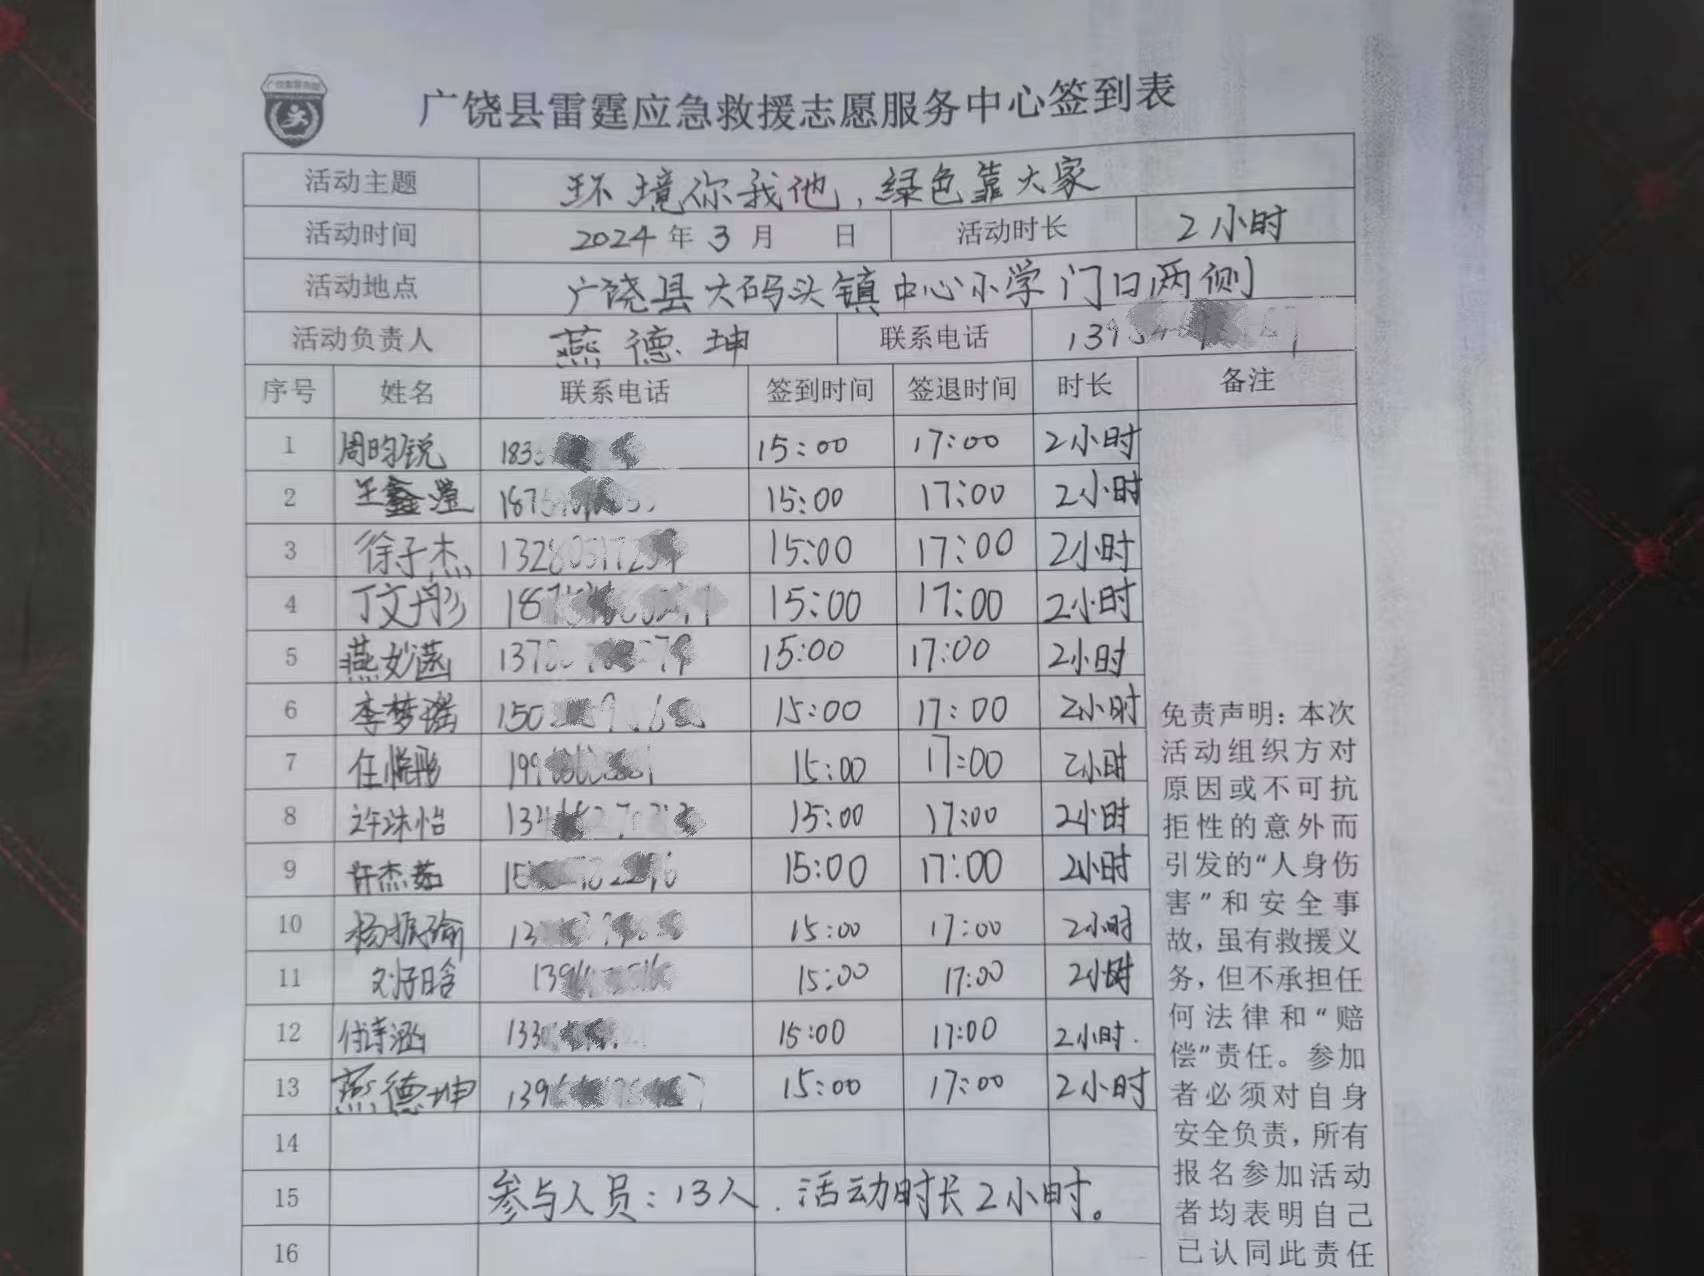 广饶县雷霆应急救援志愿服务中心签到表
活动主题 环境你我他，绿色靠大家
活动时间 2024年3月 日 活动时长 2小时
活动地点 广饶县大码头镇中心小学门口两侧
活动负责人 燕德坤 联系电话
序号 姓名 联系电话 签到时间 签退时间 时长 备注
1 周昀锐 183 15:00 17:00 2小时
2 王鑫滢 187 15:00 17:00 2小时
3 徐子杰 15:00 17:00 2小时
4 丁文彤 187 15:00 17:00 2小时
5 燕妙菡 137 15:00 17:00 2小时
6 李梦瑶 150 15:00 17:00 2小时
7 任悦彤 199 15:00 17:00 2小时
8 许沐怡 134 15:00 17:00 2小时
9 许杰茹 15:00 17:00 2小时
10 杨振瑜 13 15:00 17:00 2小时
11 15:00 17:00 2小时
12 付诗涵 133 15:00 17:00 2小时.
13 燕德坤 139 15:00 17:00 2小时
14
15 参与人员：13人. 活动时长2小时。
16
免责声明：本次
活动组织方对
原因或不可抗
拒性的意外而
引发的“人身伤
害”和安全事
故，虽有救援义
务，但不承担任
何法律和“赔
偿”责任。参加
者必须对自身
安全负责，所有
报名参加活动
者均表明自己
已认同此责任